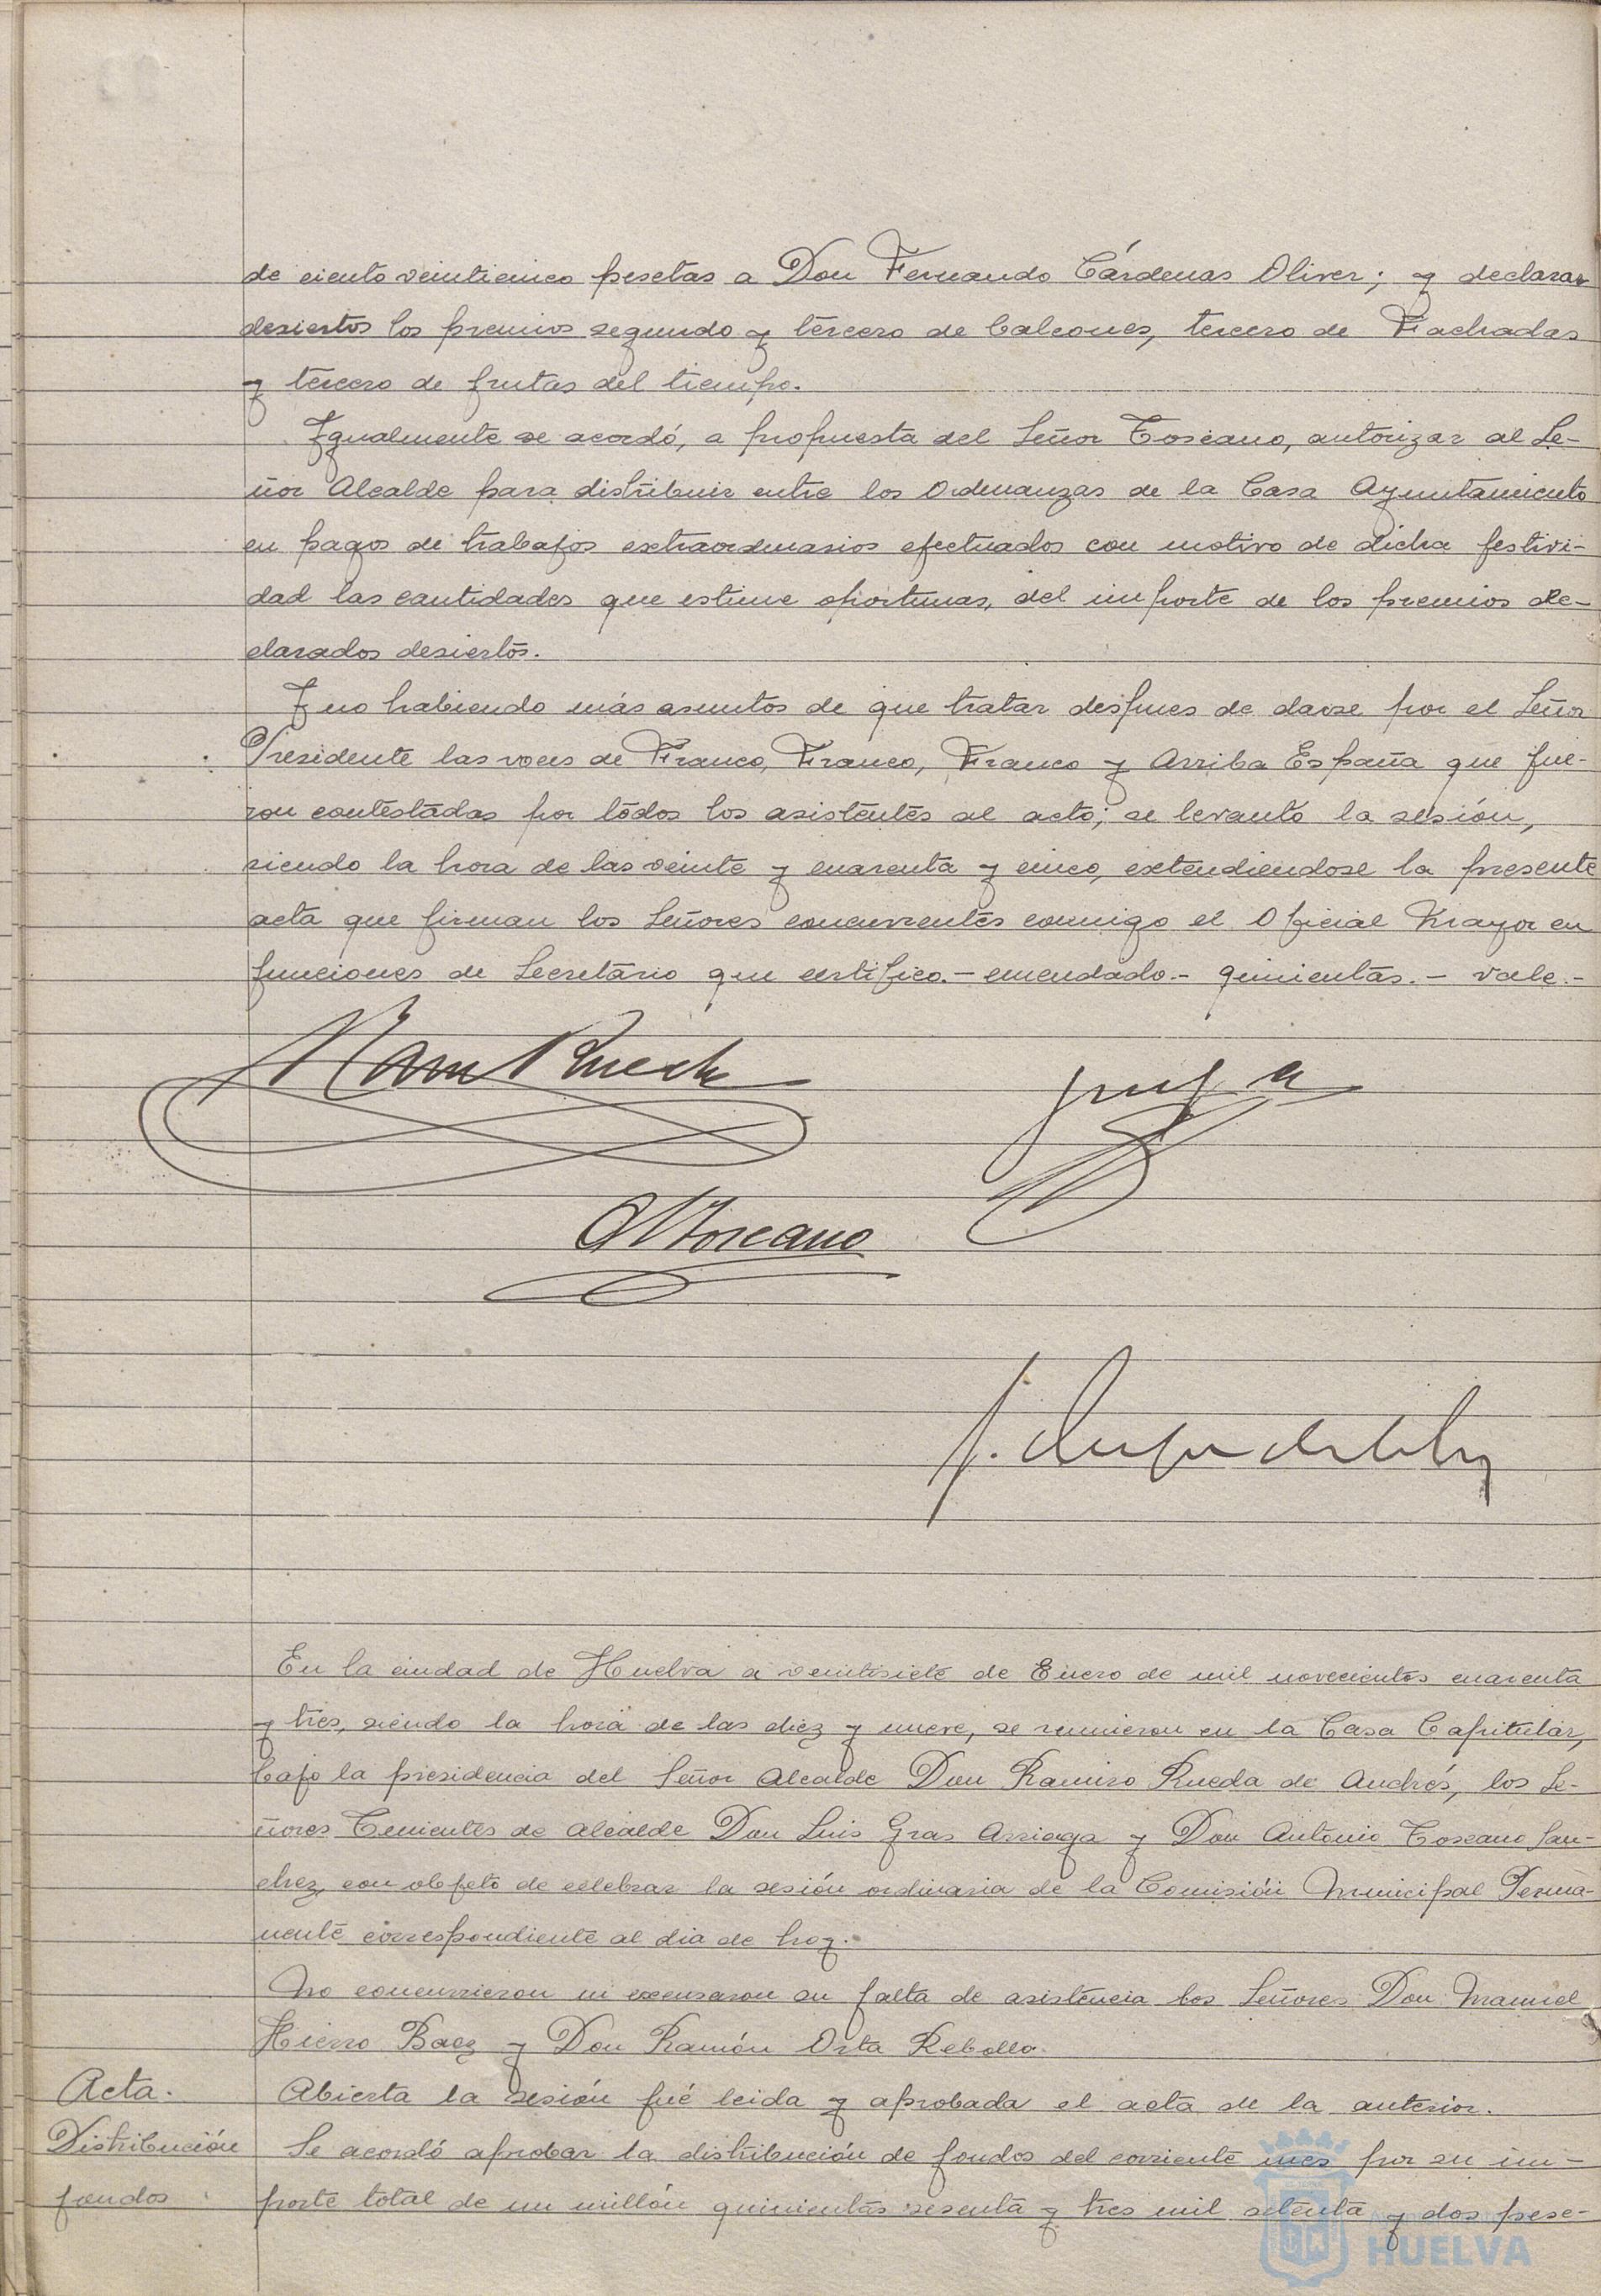 de ciento veinticinco pesetas a Don Fernando Cárdenas Oliver; y declarar
desiertos los premios segundo y tercero de balcones, tercero de Fachadas
y tercero de frutas del tiempo.
Igualmente se acordó, a propuesta del Señor Toscano, autorizar al Se-
ñor Alcalde para distribuir entre los Ordenanzas de la Casa Ayuntamiento
en pagos de trabajos extraordinarios efectuados con motivo de dicha festivi-
dad las cantidades que estime oportunas, del importe de los premios de-
clarados desiertos.
Y no habiendo más asuntos de que tratar despues de darse por el Señor
Presidente las voces de Franco, Franco, Franco y Arriba España que fue-
ron contestadas por todos los asistentes al acto; se levantó la sesión,
siendo la hora de las veinte y cuarenta y cinco, extendiendose la presente
acta que firman los Señores concurrentes conmigo el Oficial Mayor en
funciones de Secretario que certifico.- enmendado.- quinientas.- vale.-
AToscano
En la ciudad de Huelva a veintisiete de Enero de mil novecientos cuarenta
y tres, siendo la hora de las diez y nueve, se reunieron en la Casa Capitular,
bajo la presidencia del Señor Alcalde Don Ramiro Rueda de Andrés, los Se-
ñores Tenientes de Alcalde Don Luis Gras Arriaga y Don Antonio Toscano San-
chez, con objeto de celebrar la sesión ordinaria de la Comisión Municipal Perma-
nente correspondiente al dia de hoy.
No concurrieron ni excusaron su falta de asistencia los Señores Don Manuel
Hierro Baez y Don Ramón Orta Rebollo.
Acta. Abierta la sesión fué leida y aprobada el acta de la anterior.
Distribución Se acordó aprobar la distribución de fondos del corriente mes por su im-
fondos porte total de un millón quinientas sesenta y tres mil setenta y dos pese-
HUELVA